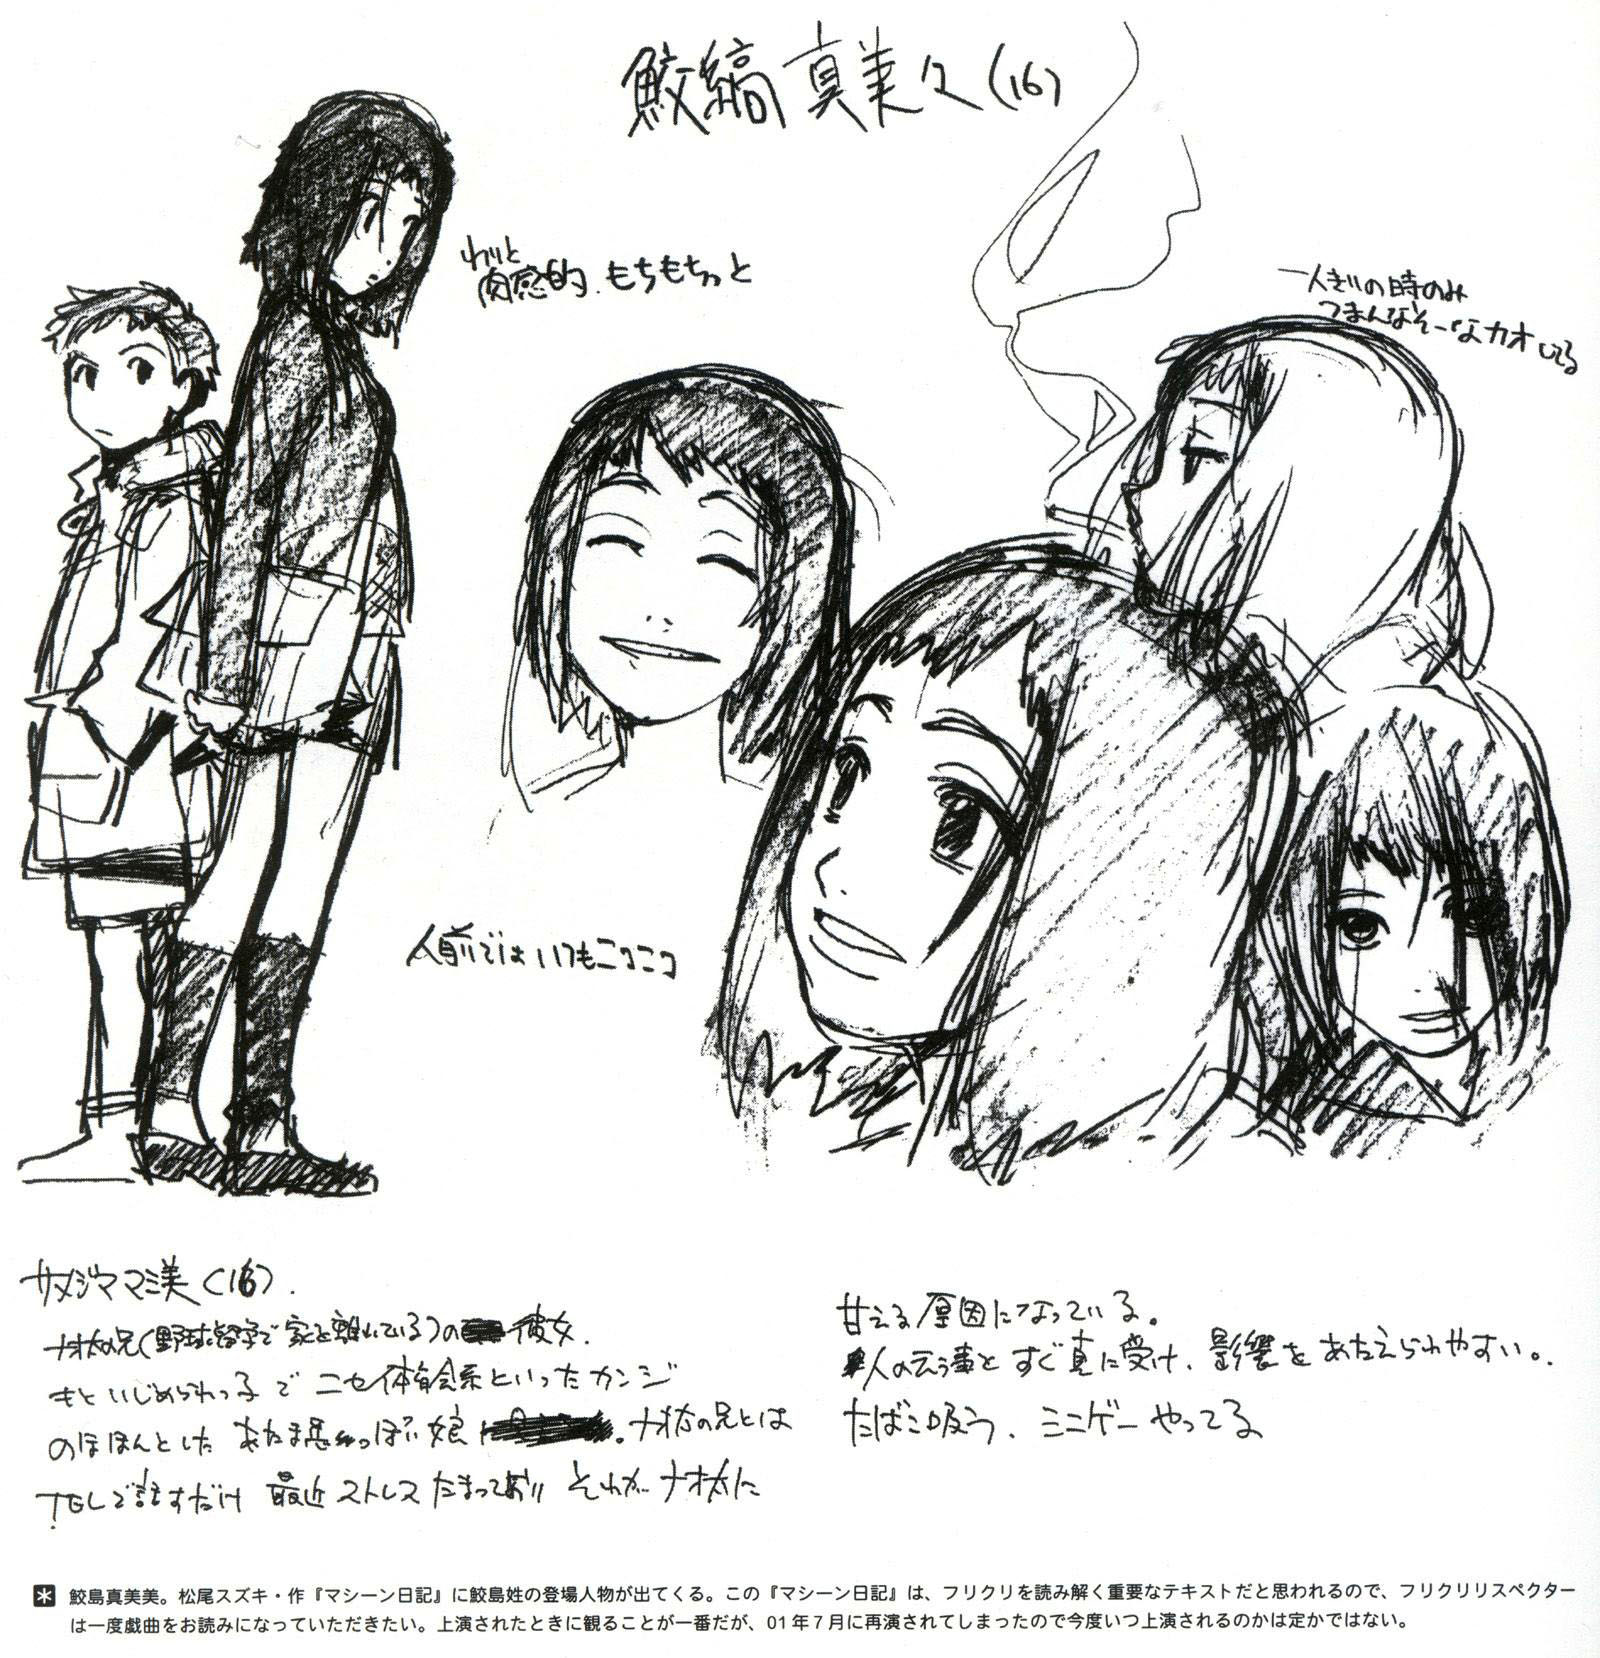 鮫縞 真美々(16)
わりと
肉感的.もちもちっと
一人きりの時のみ
つまんなそーなカオしてる
人前では いつもニコニコ
サメジママミ美(16).
ナオ太の兄(野球留学で家を離れている)の 彼女.
もといじめられっ子で ニセ体育会系といったカンジ
のほほんとした あたま悪っぽい娘 。ナオ太の兄とは
TELで話すだけ 最近ストレスたまっており それがナオ太に
甘える原因になっている。
人の云う事をすぐ真に受け、影響をあたえられやすい。
たばこ吸う、ミニゲーやってる
* 鮫島真美美。松尾スズキ・作『マシーン日記』に鮫島姓の登場人物が出てくる。この『マシーン日記』は、フリクリを読み解く重要なテキストだと思われるので、フリクリリスペクター
は一度戯曲をお読みになっていただきたい。上演されたときに観ることが一番だが、01年7月に再演されてしまったので今度いつ上演されるのかは定かではない。